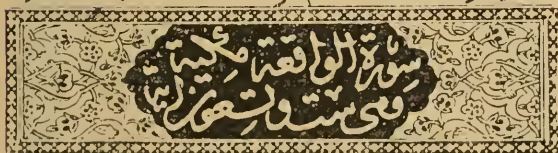 سورة الواقعة مكية
وهي ست وتسعون آية